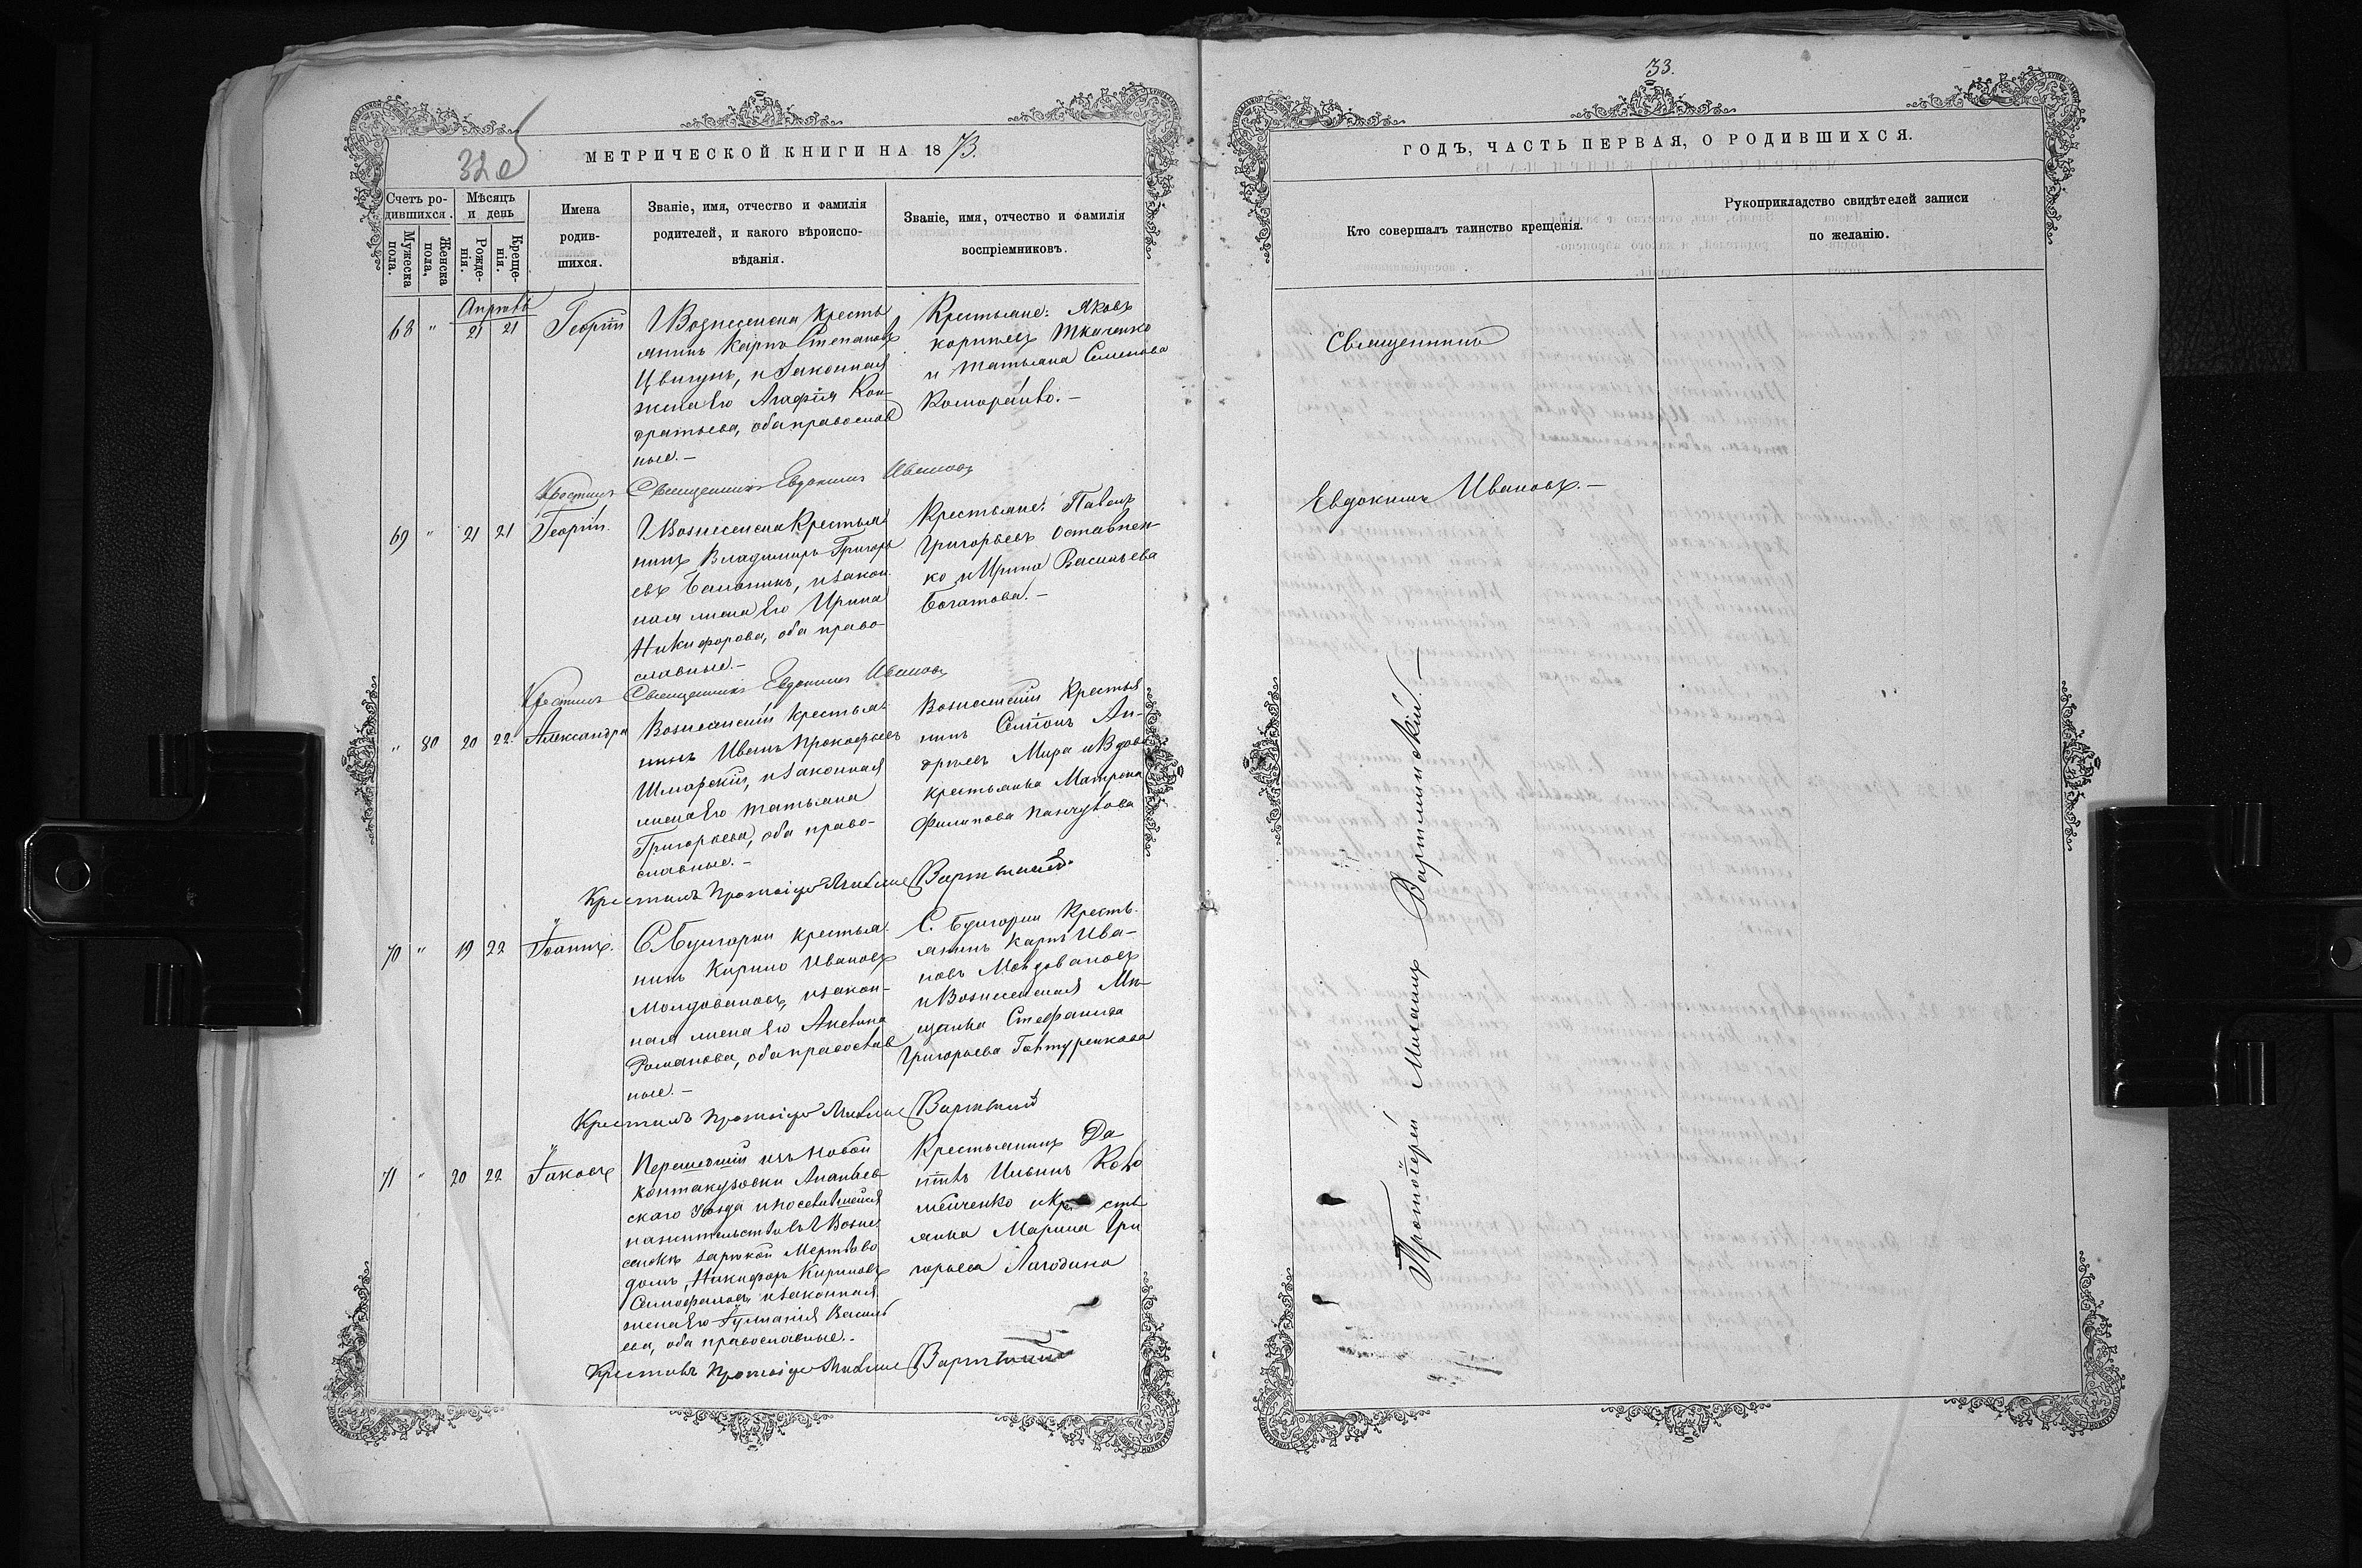 32 об
МЕТРИЧЕСКОЙ КНИГИ НА 1873.
Счетъ ро-
дившихся.
Мѣсяцъ
и день
Имена
родив-
шихся.
Званіе, имя, отчество и фамилія
родителей, и какого вѣроиспо-
вѣданія.
Званіе, имя, отчество и фамилія
воспріемниковъ.
Мужеска
пола.
Женска
пола.
Рожде-
нія.
Креще-
нія.
Апрѣль
68 " 21 21 Георгій
Г Вознесенска кресть
янинъ Карпъ Степановъ
Цвигунъ, и законная
жена его Агафія Кон-
дратьева, оба православ
ные.-
Крестьяне: Яковъ
Ткаченко
и Татьяна Семенова
Крестилъ Священникъ Евдокимъ Ивановъ
69 " 21 21 Георгій.
Г Вознесенска Крестья
нинъ Владимиръ Григорь
евъ и закон
ная жена его Ирина
Никифорова, оба право-
славные.-
Крестьяне: Павелъ
Григорьевъ Оставнен-
ко и Ирина Васильева
Богатова.-
Крестилъ Священникъ Евдокимъ Ивановъ
" 80 20 22. Александра
Вознесенскій крестья
нинъ Иванъ Прокофьевъ
Шморскій, и законная
жена его Татьяна
Григорьева, оба право-
славные.-
Вознесенскій Крестья
нинъ Семіонъ Ан-
дреевъ Мира и Вдова
крестьянка Матрона
Филипова
Крестилъ Протоіерей Михаилъ
70 " 19 22 Іоаннъ.
С. Булгарки крестья
нинъ Кирило Ивановъ
Молдовановъ, и закон-
ная жена его Акилина
Романова, оба православ
ные.-
С. Булгарки Кресть-
янинъ Карпъ Ива-
новъ Молдовановъ
и Вознесенская Мѣ-
щанка Стефанида
Григорьева
Крестилъ Протоіерей Михаилъ
71 " 20 22 Іаковъ
Перешедшій изъ Новой
Контакузовки Ананьев-
скаго уѣзда и поселившейся
на жительство въ Г Возне
сенскѣ за рѣкой Мертвово
домъ, Никифоръ Кириловъ
и законная
жена его Іуліанія Василь
ева, оба православные.-
Крестьянинъ
Ильинъ
и Кресть
янка Марина Гри
горьева
Крестилъ Протоіерей Михаилъ
33.
ГОДЪ, ЧАСТЬ ПЕРВАЯ, О РОДИВШИХСЯ.
Кто совершалъ таинство крещенія.
Рукоприкладство свидѣтелей записи
по желанію.
Священникъ
Евдокимъ Ивановъ.-
Протоіерей Михаилъ